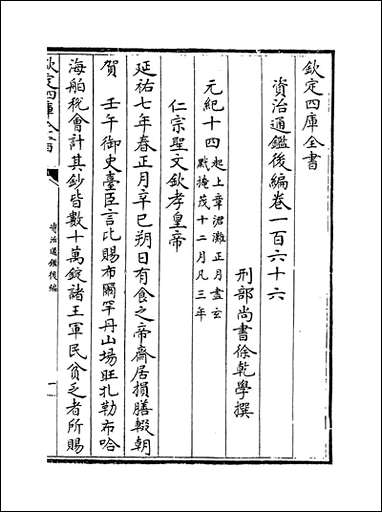 欽定四庫全書
資治通鑑後編卷一百六十六
刑部尚書徐乾學撰
元紀十四
起上章涒灘正月盡玄
黓掩茂十二月凡三年
仁宗聖文欽孝皇帝
延祐七年春正月辛巳朔日有食之帝齋居損膳輟朝
賀 壬午御史臺臣言比賜布爾罕丹山場旺扎勒布哈
海舶稅會計其鈔皆數十萬錠諸王軍民貧乏者所賜
欽定四庫全書
資治通鑑後編
一